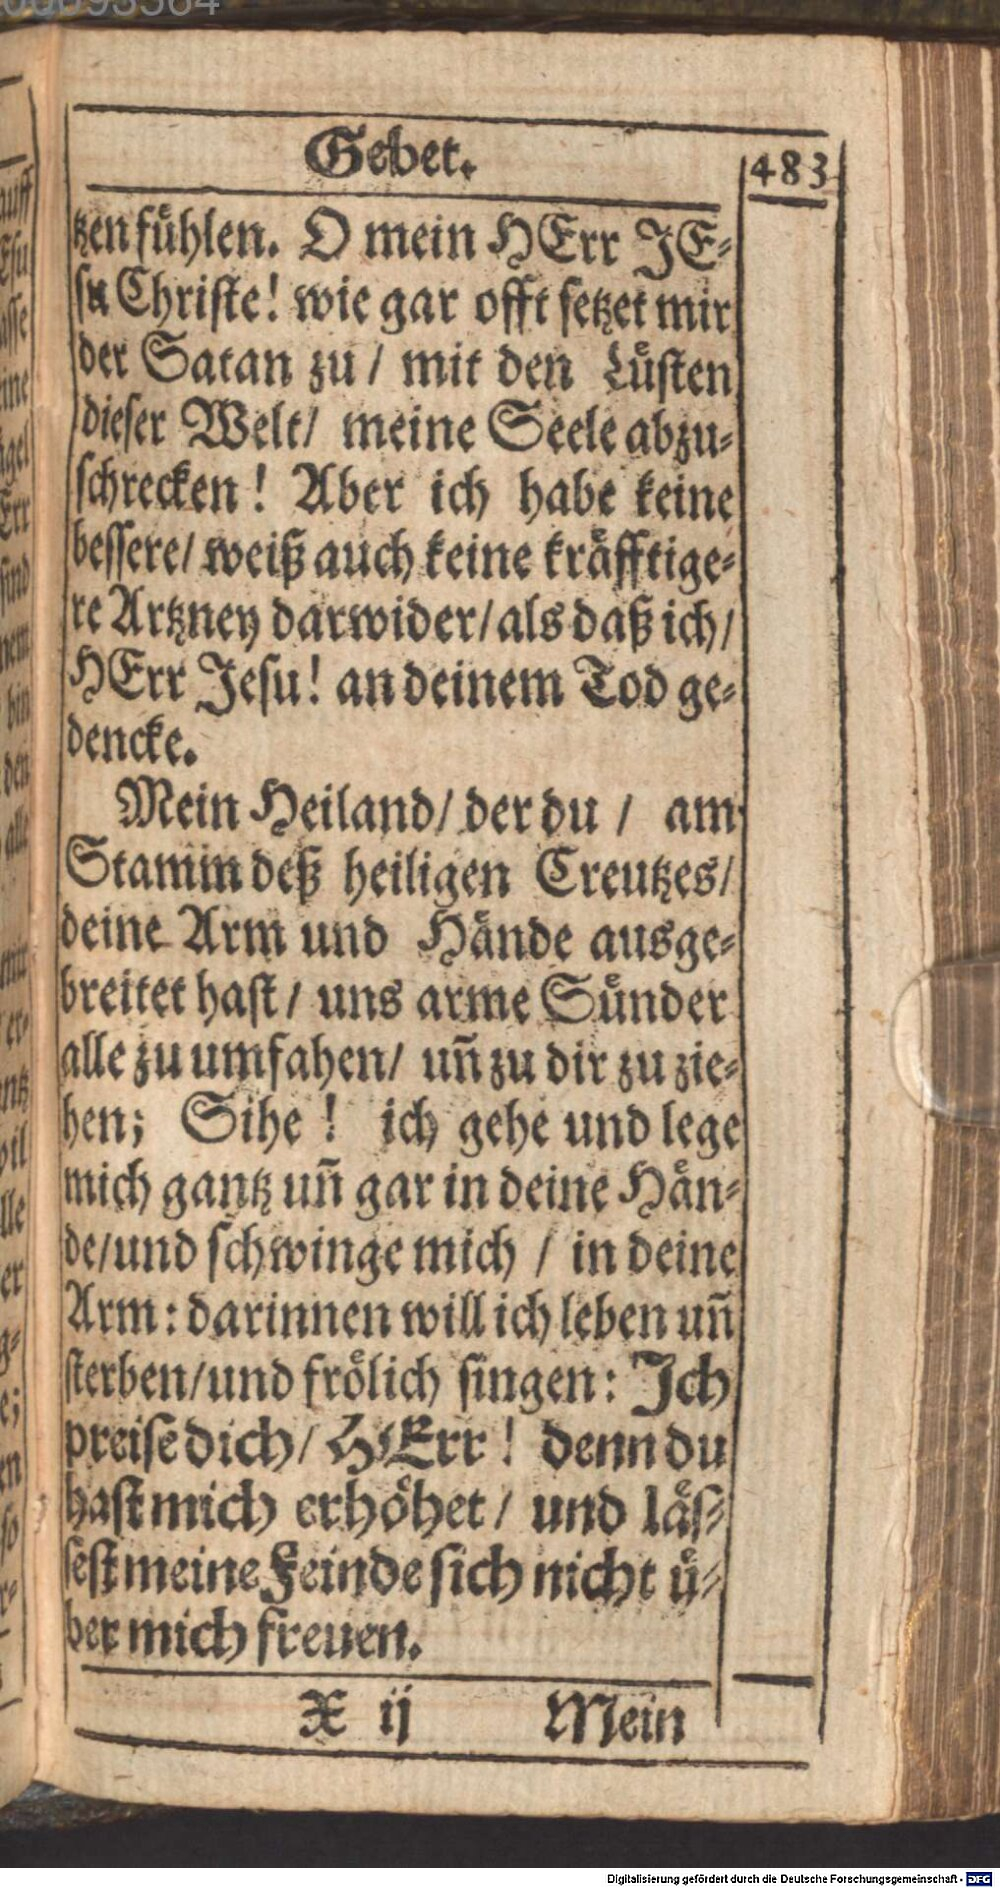 Gebet. 483
tzen fühlen. O mein HErr JE-
su Christe! wie gar offt setzet mir
der Satan zu / mit den Lüsten
dieser Welt/ meine Seele abzu-
schrecken! Aber ich habe keine
bessere/ weiß auch keine kräfftige-
re Artzney darwider/ als daß ich/
HErr Jesu! an deinem Tod ge-
dencke.
Mein Heiland/ der du / am
Stamm deß heiligen Creutzes/
deine Arm und Hände ausge-
breitet hast/ uns arme Sünder
alle zu umfahen/ uñ zu dir zu zie-
hen; Sihe! ich gehe und lege
mich gantz uñ gar in deine Hän-
de/ und schwinge mich / in deine
Arm: darinnen will ich leben uñ
sterben/ und frölich singen: Ich
preise dich/ HErr! denn du
hast mich erhöhet/ und läs-
sest meine Feinde sich nicht ü-
ber mich freuen.
X ij Mein
Digitalisierung gefördert durch die Deutsche Forschungsgemeinschaft - DFG